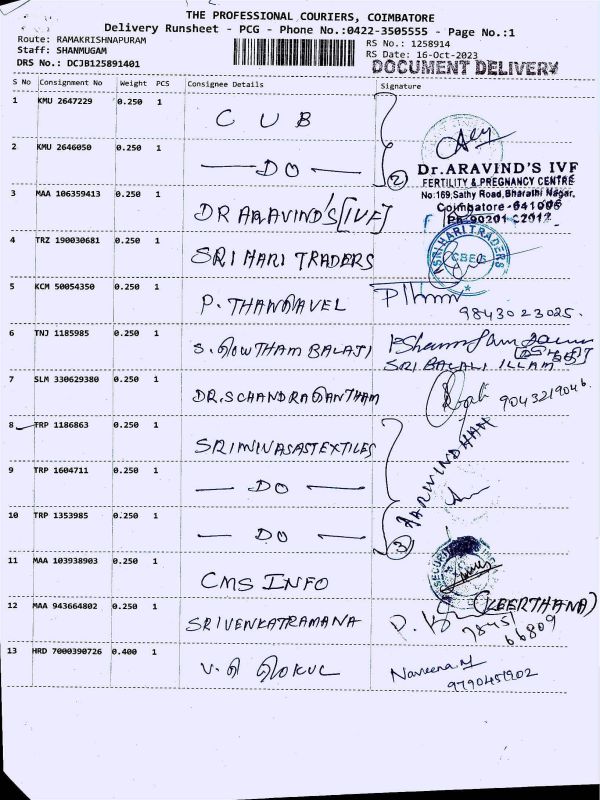 THE PROFESSIONAL COURIERS, COIMBATORE
Delivery Runsheet - PCG - Phone No.:0422-3505555 - Page No.:1
Route: RAMAKRISHNAPURAM
Staff: SHANMUGAM
DRS No.: DCJB125891401
RS No.: 1258914
RS Date: 16-Oct-2023
DOCUMENT DELIVERY
S No Consignment No Weight PCS Consignee Details Signature
1 KMU 2647229 0.250 1 CUB
2 KMU 2646050 0.250 1 — DO —
2
Dr.ARAVIND'S IVF
FERTILITY & PREGNANCY CENTRE
No:169,Sathy Road,Bharathi Nagar,
Coimbatore-641006
3 MAA 106359413 0.250 1 DR ARAVIND'S [IVF]
4 TRZ 190030681 0.250 1 SRI HARI TRADERS
SRI HARI TRADERS
CBE-6
5 KCM 50054350 0.250 1 P. THANGAVEL
9843023025.
6 TNJ 1185985 0.250 1 S. GOWTHAM BALAJI
SRI BALAJI ILLAM
7 SLM 330629380 0.250 1 DR.SCHANDRAGANTHAM
9043219046.
8 TRP 1186863 0.250 1 SRINIVASASTEXTILES
9 TRP 1604711 0.250 1 — DO —
10 TRP 1353985 0.250 1 — DO —
3 AARWINDHAN
11 MAA 103938903 0.250 1 CMS INFO
12 MAA 943664802 0.250 1 SRIVENKATRAMANA
(KEERTHANA)
78451
66809
13 HRD 7000390726 0.400 1 V. G GOKUL
Naveena.M
9790451902